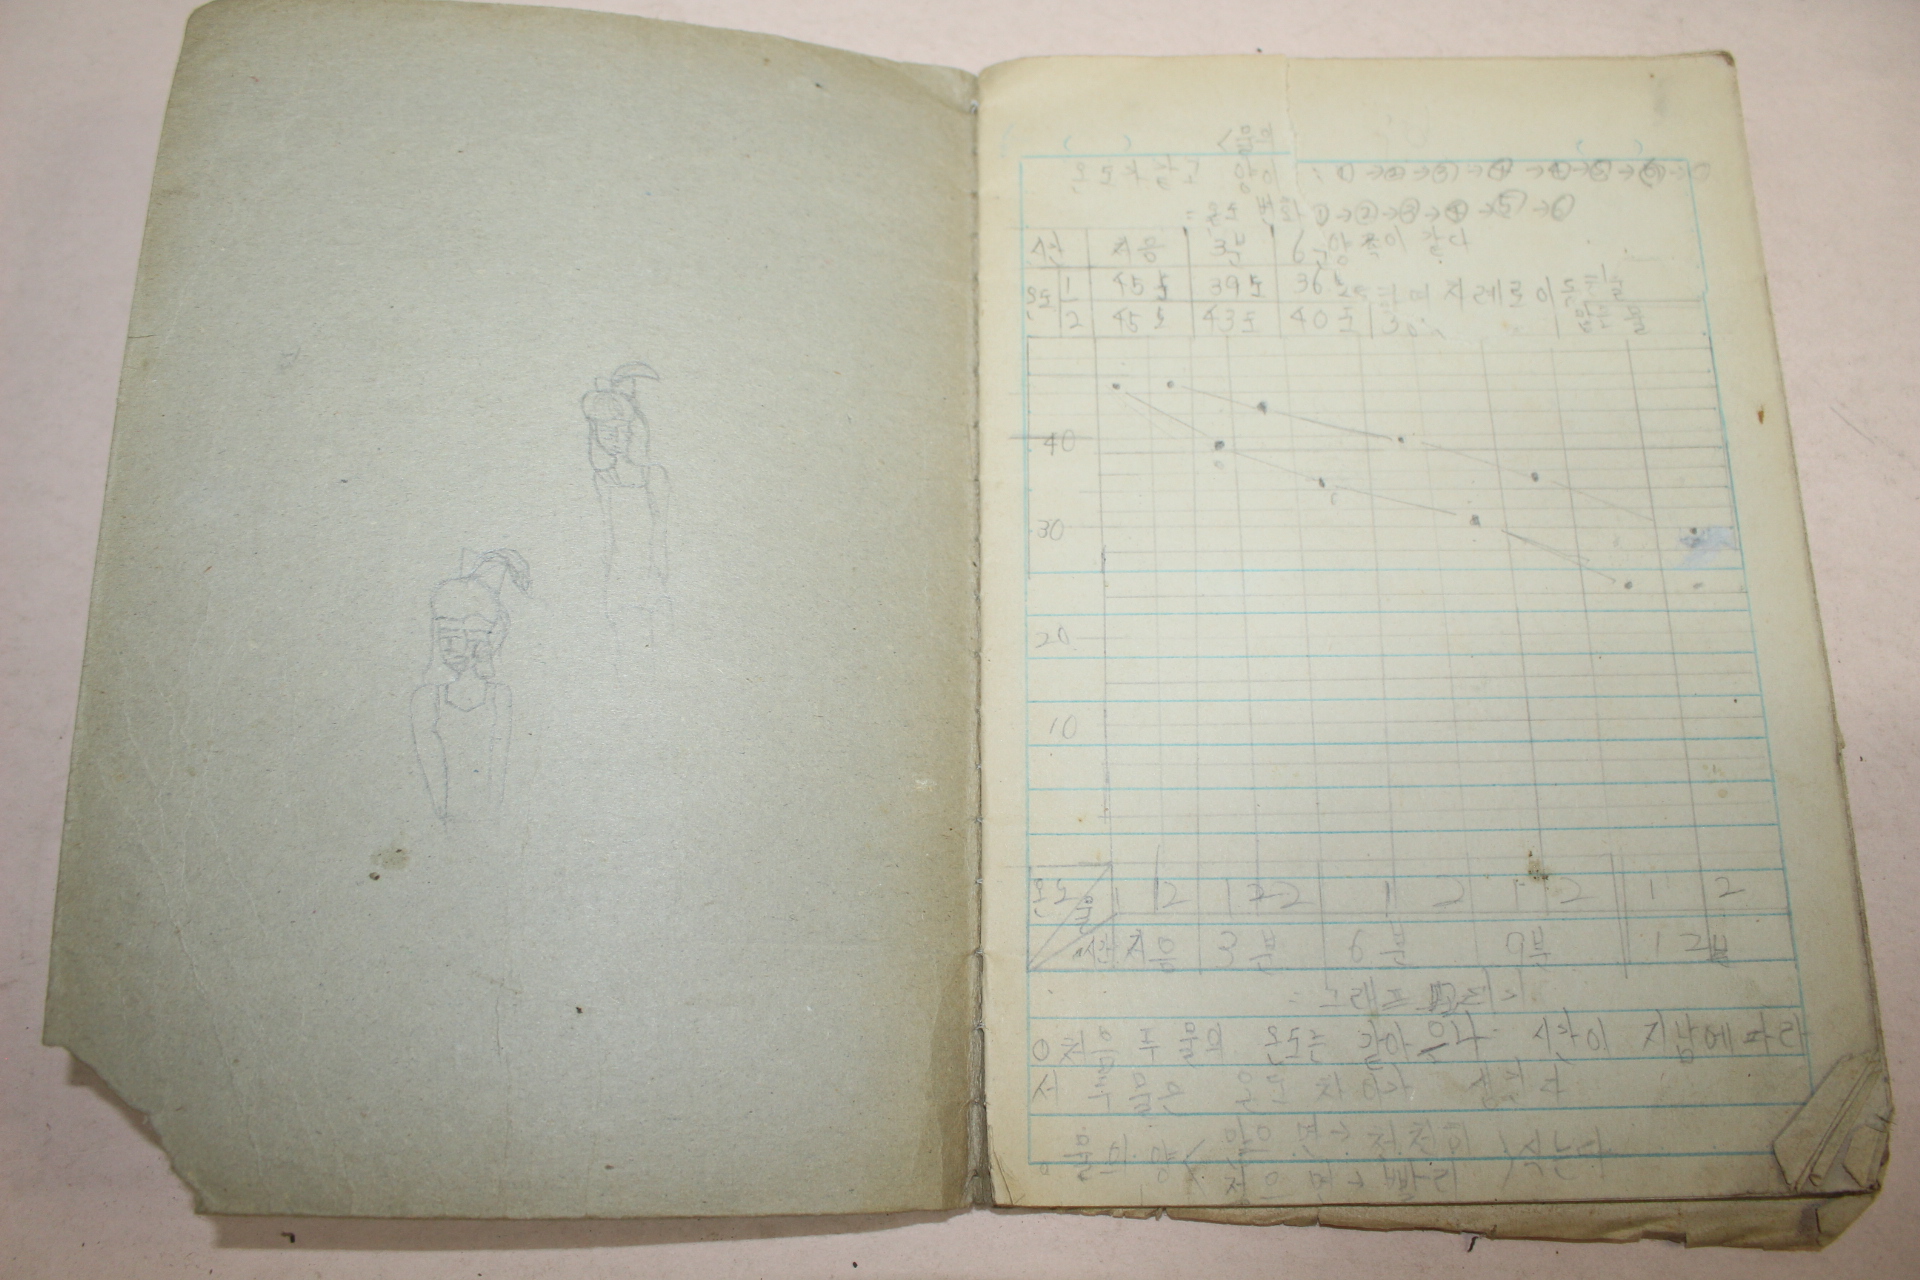 <물의
온도가 같고 양이 : ①→②→③→④→④→⑤→⑥→
: 온도 변화 ①→②→③→④→⑤→⑥
시간 처음 3분 6분
온도 1 45도 39도 36도 차례로이
2 45도 43도 40도
40
30
20
10
온도 물 1 2 1 2 1 2 1 2 1 2
시간 처음 3분 6분 9분 12분
: 그래프
○처음 두 물의 온도는 같아으나 시간이 지남에따라
서 두 물은 온도 차이가 생긴다
○물의 양< 많으면→천천히 >식는다
적으면→빨리